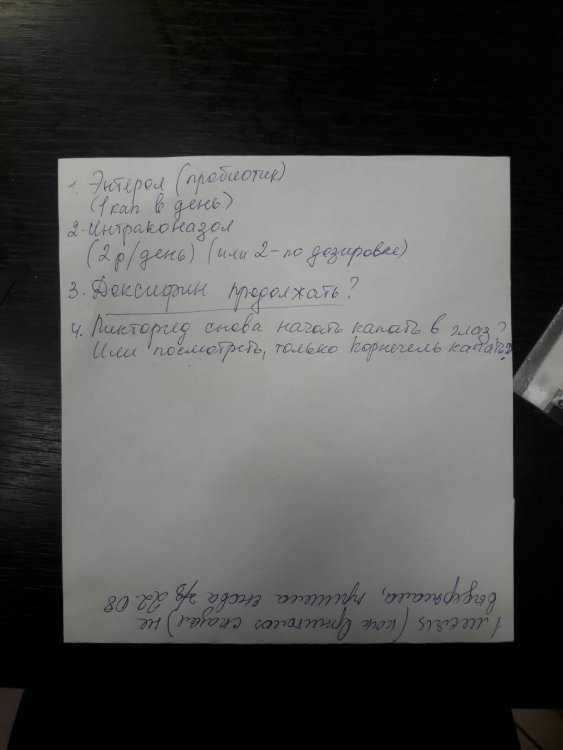 1. Энтерол (пробиотик)
(1 кап в день)
2. Интраконазол
(2 р/день) (или 2 - по дозировке)
3. Доксифин продолжать?
4. Пикторед снова начать капать в глаз?
Или посмотреть, только корнегель капать?
1 месяц (как Орнитолог сказал) не
выдержала, пришла снова 22.08